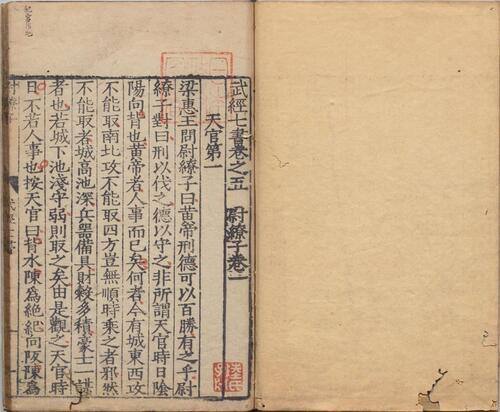 武經七書卷之五　尉繚子卷一
天官第一
梁惠王問尉繚子曰黃帝刑德可以百勝有之乎尉
繚子對曰刑以伐之德以守之非所謂天官時日陰
陽向背也黃帝者人事而已矣何者今有城東西攻
不能取南北攻不能取四方豈無順時乘之者邪然
不能取者城高池深兵器備具財穀多積豪士一謀
者也若城下池淺守弱則取之矣由是觀之天官時
日不若人事也按天官曰背水陳爲絕紀向阪陳爲